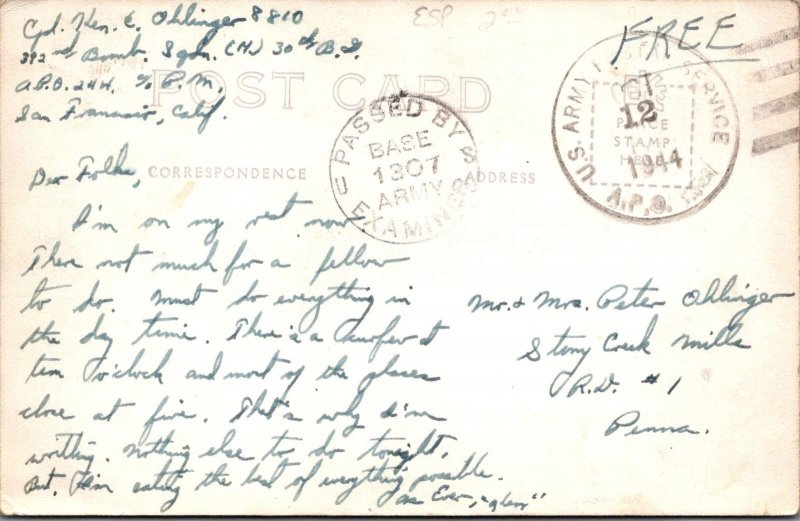 Cpl. Ken. E. Ohlinger 8810
392nd Bomb. Sqdn. (H) 30th B.G.
A.P.O. 244. % P.M.
San Francisco, Calif.
ESP
FREE
POST CARD
CORRESPONDENCE
ADDRESS
PASSED BY
BASE
1307
ARMY
EXAMINER
U.S. ARMY SERVICE
12
1944
A.P.O.
PLACE
STAMP
HERE
Dear Folks,
I'm on my rest now.
There not much for a fellow
to do. Must do everything in
the day time. There is a curfew at
ten o'clock and most of the places
close at five. That's why I'm
writting. Nothing else to do tonight.
But, I'm eating the best of everything possible.
as Ever,
Mr. & Mrs. Peter Ohlinger
Stony Creek Mills
R.D. #1
Penna.